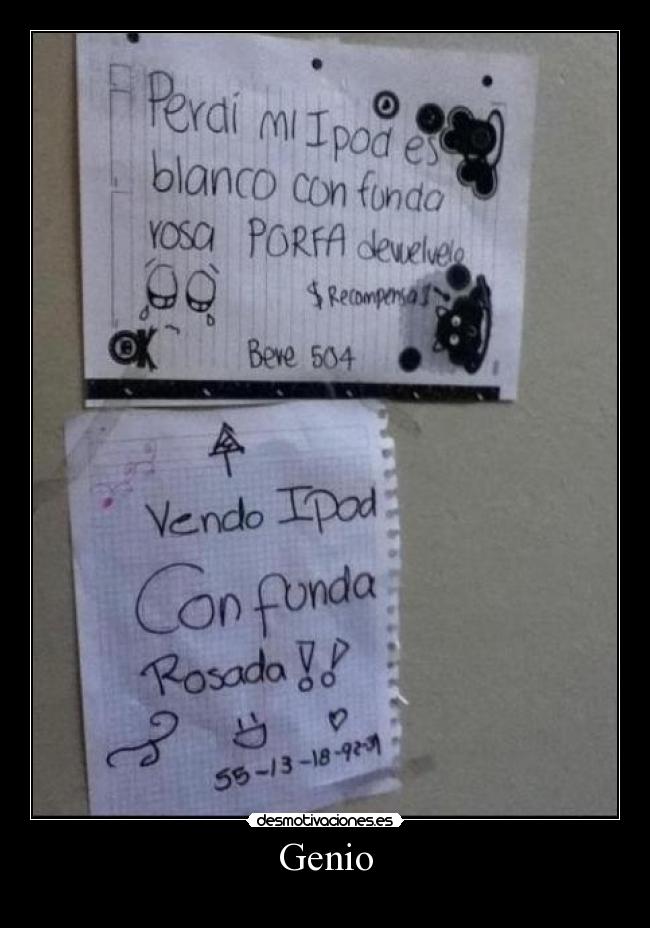 Perdí mi Ipod es
blanco con funda
rosa PORFA devuelvelo
$ Recompensa $
OK
Beve 504
Vendo IPod
Con funda
Rosada!!
55-13-18-92-31
desmotivaciones.es
Genio